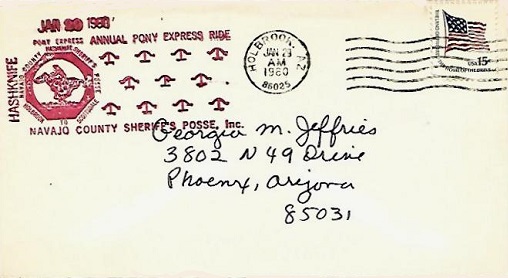 JAN 29 1980
PONY EXPRESS ANNUAL PONY EXPRESS RIDE
HASHKNIFE
NAVAJO COUNTY SHERIFF'S POSSE
HOLBROOK TO SCOTTSDALE
NAVAJO COUNTY SHERIFF'S POSSE, Inc.
HOLBROOK, AZ
JAN 29
AM
1980
86025
USA 15c
Georgia M. Jeffries
3802 N 49 Drive
Phoenix, Arizona
85031